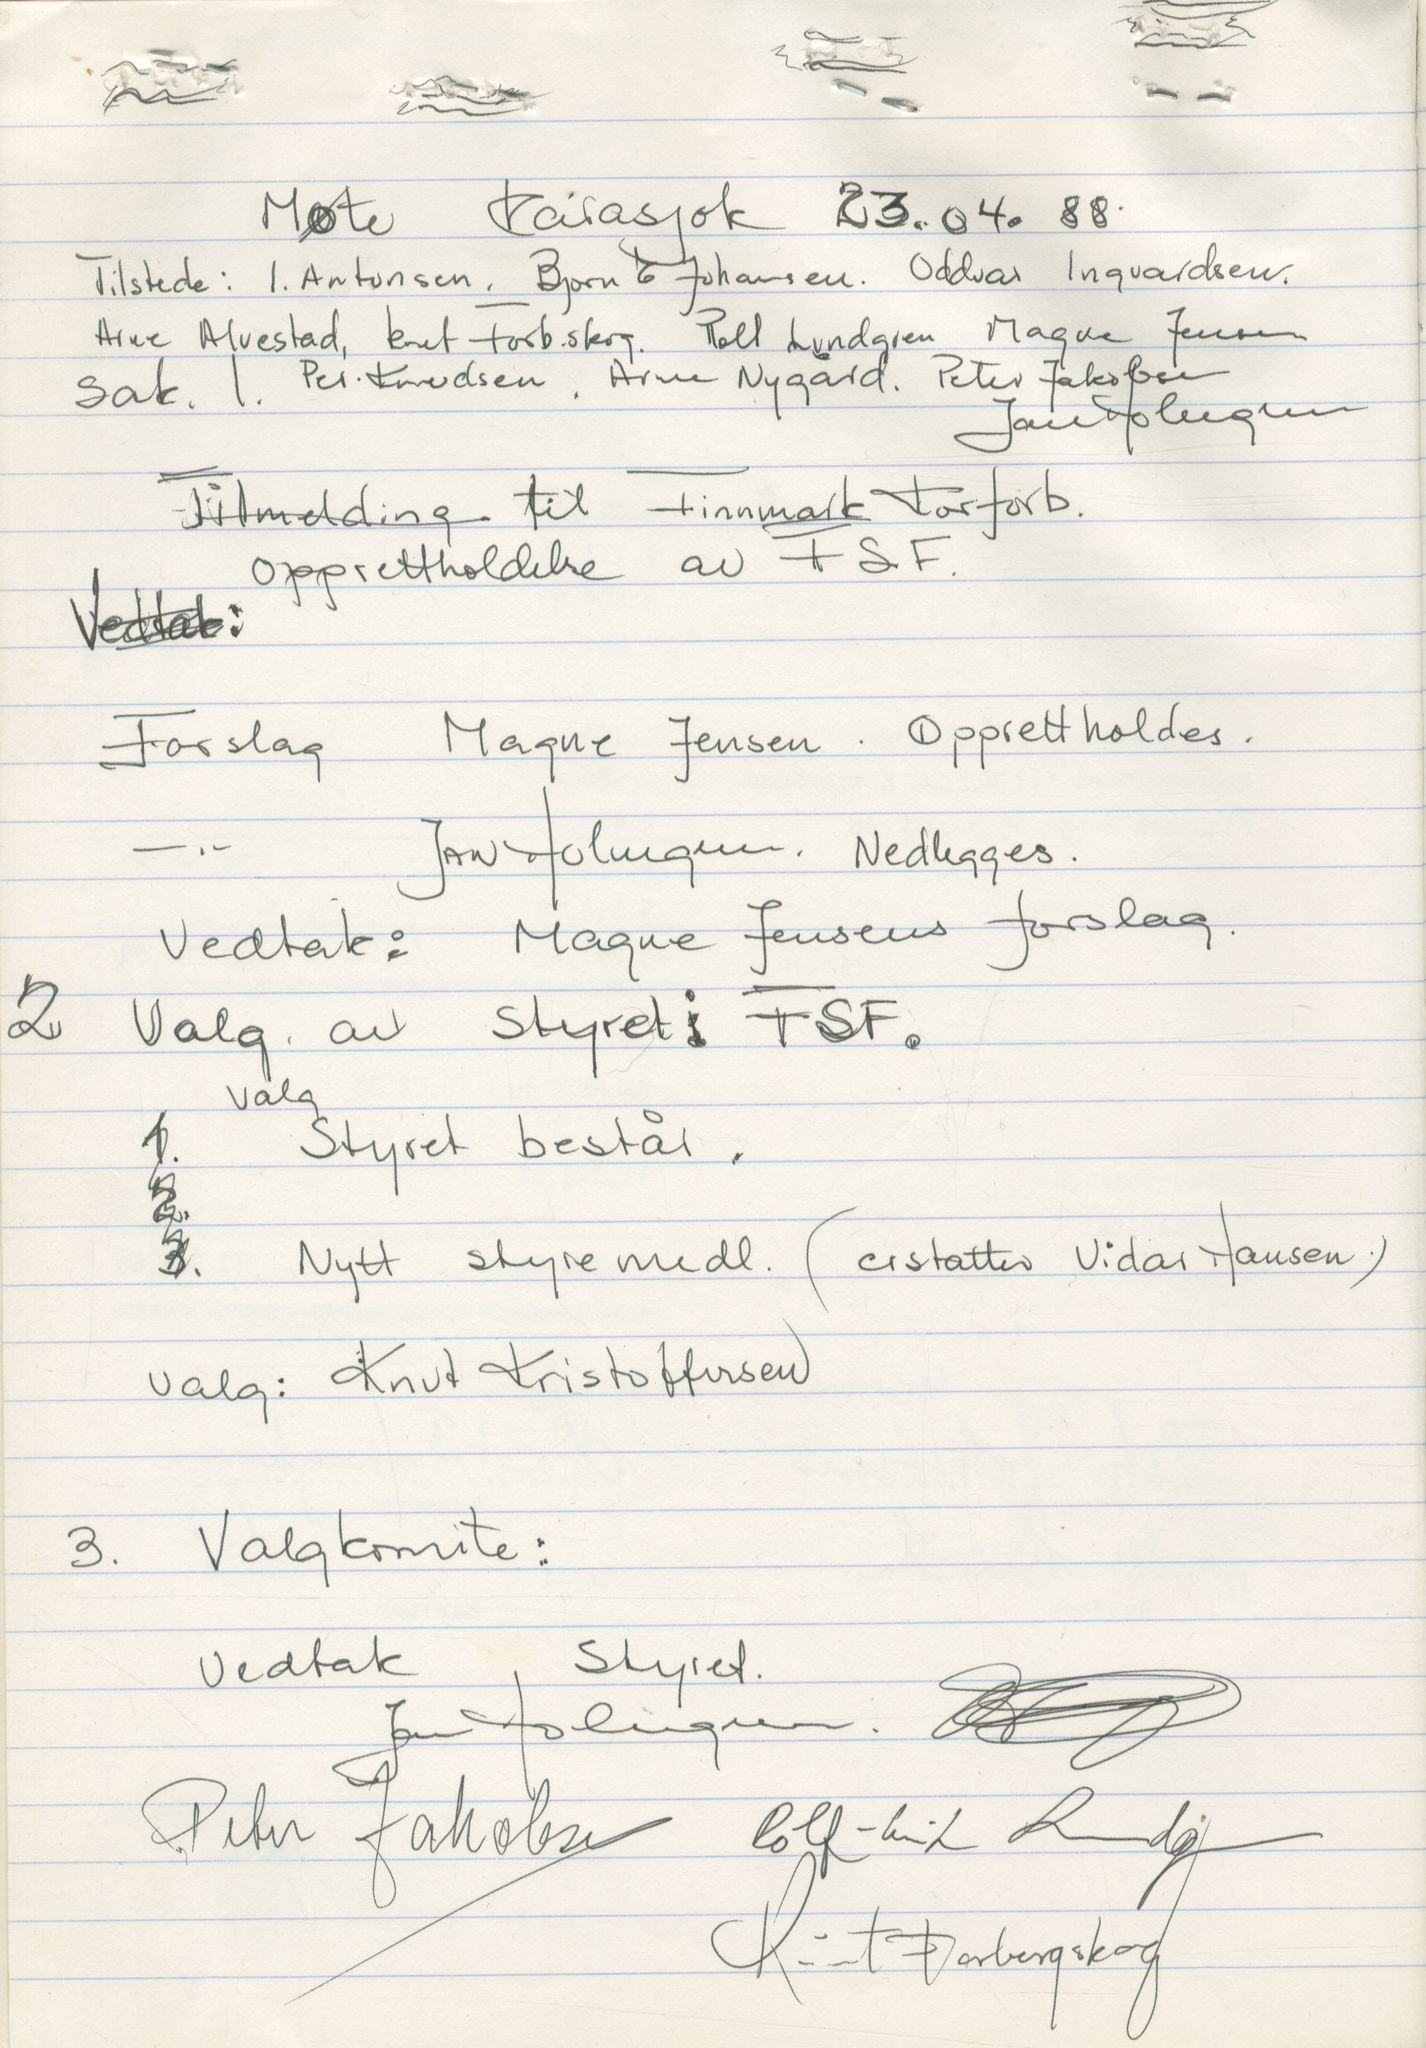 Møte Karasjok 23.04.88.
Tilstede: I. Antonsen. Bjørn E Johansen. Oddvar Ingvardsen.
Arne Alvestad, Knut Forb.skog. Rolf Lundgren Magne Jensen
Sak. 1. Per. Knudsen. Arne Nygård. Peter Jakobsen
Jan Holmgren
Tilmelding til Finnmark Korforb.
Opprettholdelse av FSF.
Vedtak:
Forslag Magne Jensen. Opprettholdes.
—"— Jan Holmgren. Nedlegges.
Vedtak: Magne Jensens forslag.
2 Valg. av styret: FSF.
valg
1. Styret består.
2.
3. Nytt styremedl. (erstatter Vidar Hansen.)
valg: Knut Kristoffersen
3. Valgkomite:
Vedtak Styret.
Jan Holmgren.
Peter Jakobsen Rolf
Knut Forbergskog